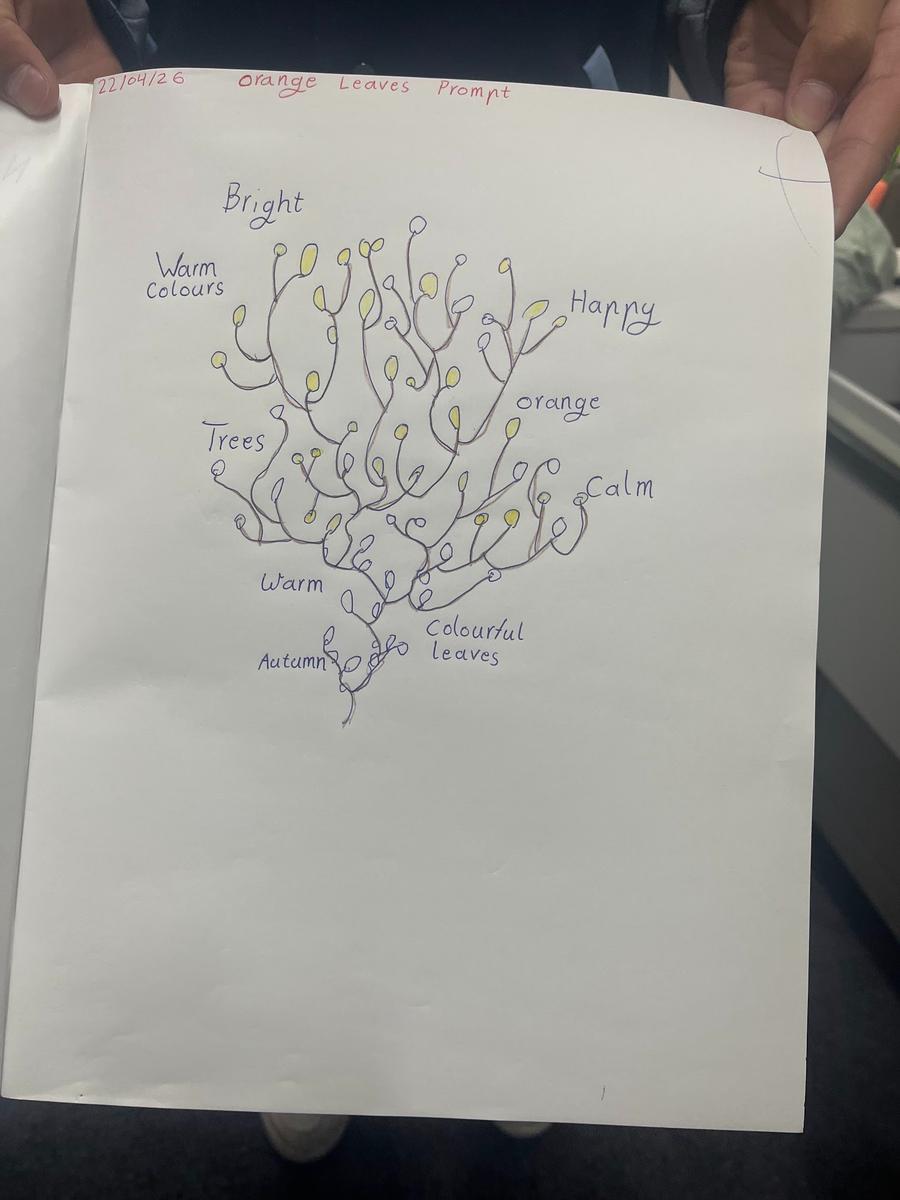 22/04/26 Orange Leaves Prompt
Bright
Warm
Colours
Happy
orange
Trees
Calm
Warm
Colourful
leaves
Autumn